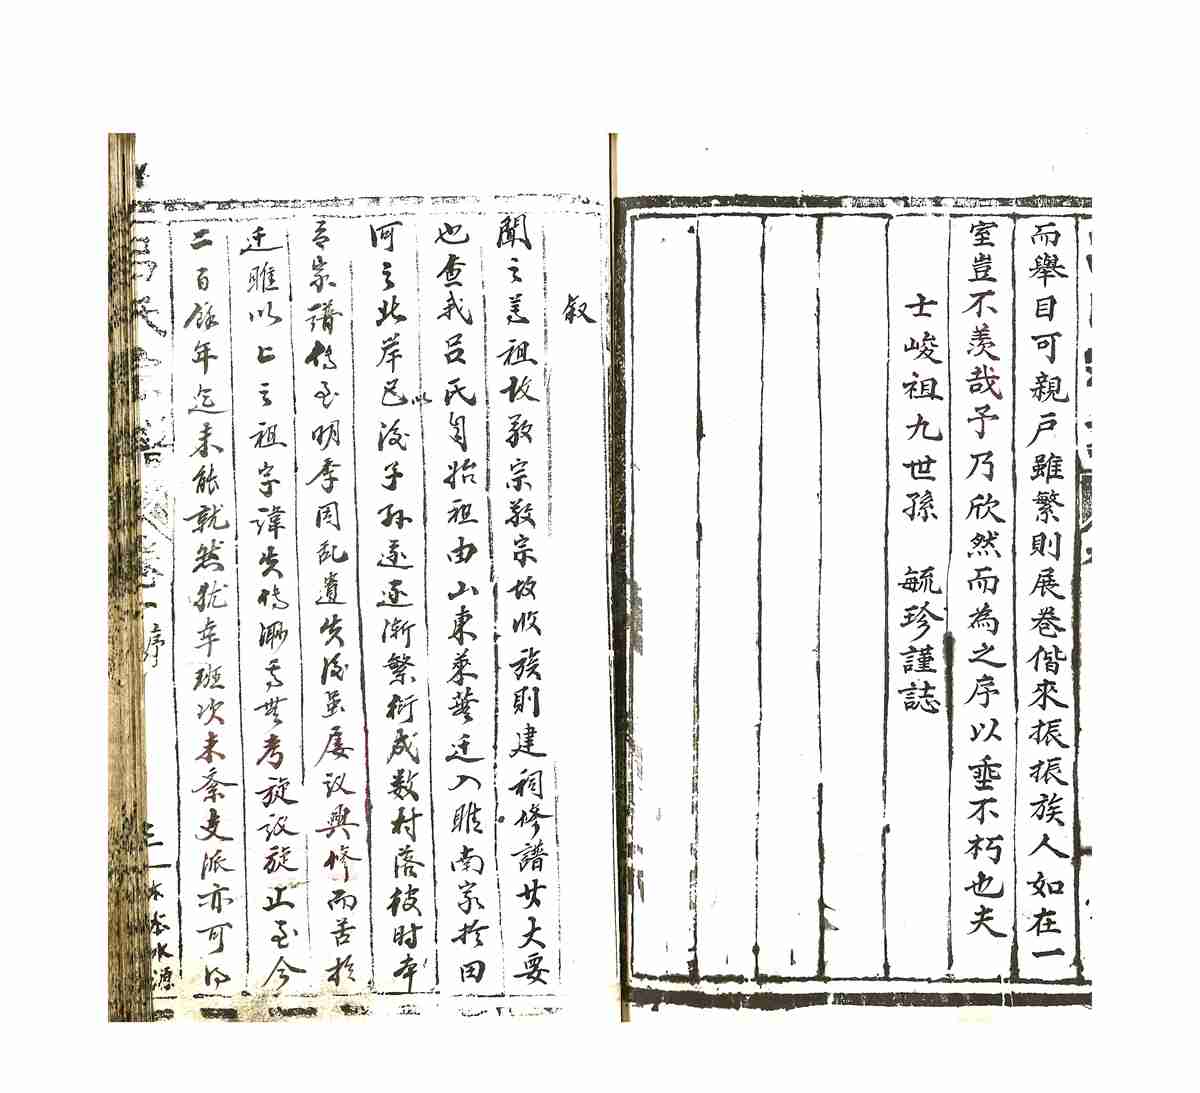 而舉目可親戸雖繁則展卷偕來振振族人如在一
室豈不羨哉予乃欣然而為之序以垂不朽也夫
士峻祖九世孫 毓珍謹誌
叙
聞之尊祖故敬宗敬宗故收族則建祠修譜廿大要
也查我吕氏自始祖由山東萊蕪迁入睢南家於田
河之北岸已以後子孫遂逐漸繁衍成数村落彼时本
言家譜傳至明季因乱遺失後虽屡议興修而苦於
迁睢以上之祖字諱失傳渺焉無考旋议旋止至今
二百餘年迄未能就然犹幸班次未紊支派亦可
吕氏
卷一 序
三一 木本水源